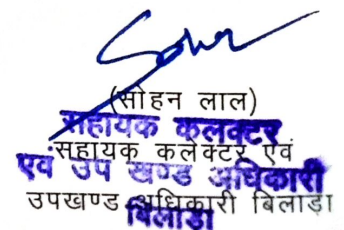 (सोहन लाल)
सहायक कलक्टर
सहायक कलेक्टर एवं
एवं उप खण्ड अधिकारी
उपखण्ड अधिकारी बिलाड़ा
बिलाडा